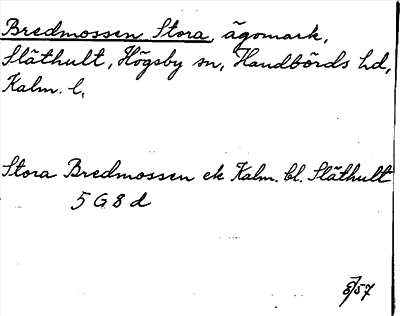 Bredmossen Stora, ägomark,
Släthult, Högsby sn, Handbörds hd,
Kalm. l.
Stora Bredmossen ek Kalm. bl. Släthult
5 G 8 d
/57